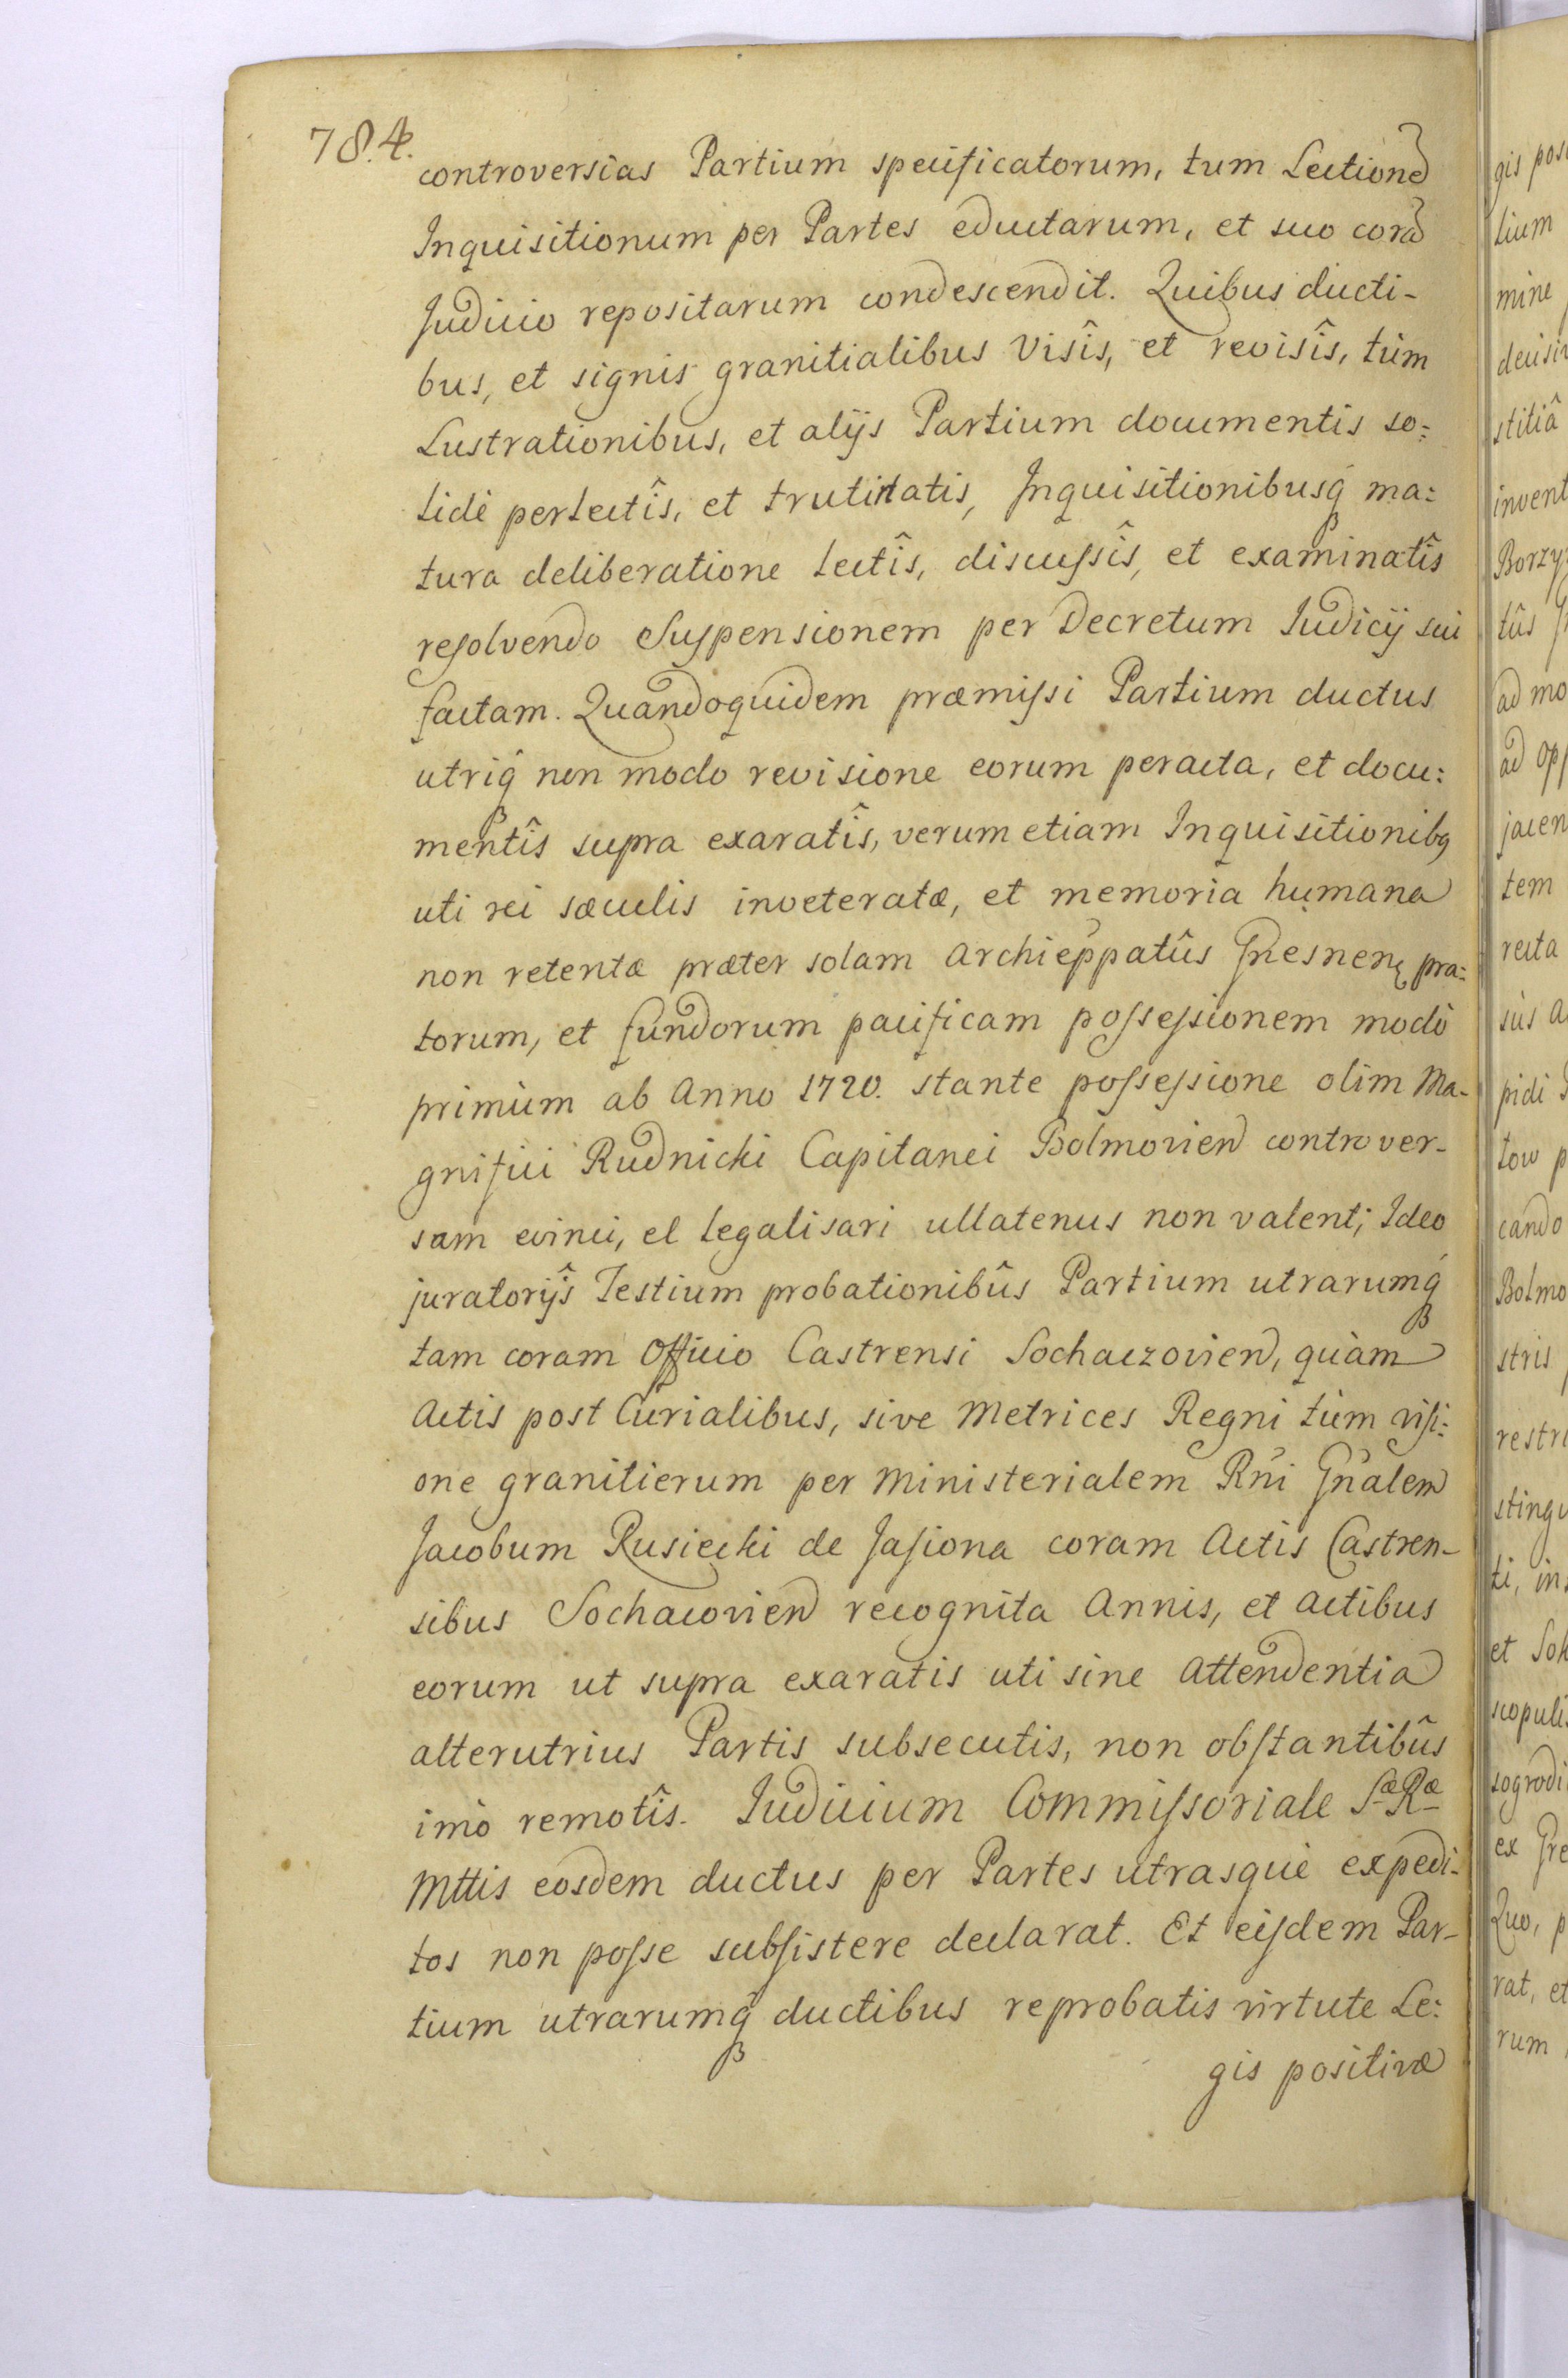 784.
controversias Partium specificatorum, tum Lectione
Inquisitionum per Partes eductarum, et suo corā
Judicio repositarum condescendit. Quibus ducti-
bus, et signis granitialibus visîs, et revisîs, tùm
Lustrationibus, et alijs Partium documentis so:
lidè perlectîs, et trutinatis, Inquisitionibusq́ ma:
tura deliberatione lectîs, discuſsîs, et examinatîs
reſolvendo Suſpensionem per Decretum Judicij sui
factam. Quandoquidem præmiſsi Partium ductus
utriq́ non modo revisione eorum peracta, et docu:
mentîs supra exaratîs, verum etiam Inquisitionibꝯ
uti rei sæculis inveteratæ, et memoria humana
non retentæ præter solam Archiep̄patûs Gnesnen̄ pra:
torum, et fundorum pacificam poſseſsionem modò
primùm ab Anno 1720. stante poſseſsione olim Ma-
gnifici Rudnicki Capitanei Bolmovien̄ controver-
sam evinci, el legalisari ullatenus non valent; Ideo
juratorijŝ Testium probationibûs Partium utrarumq́
tam coram Officio Castrensi Sochaczovien̄, quàm
Actis post Curialibus, sive Metrices Regni tùm viſi:
one granitierum per Ministerialem Rn̄i Gn̄alem
Jacobum Rusiecki de Jaſiona coram Actis Castren-
sibus Sochacovien̄ recognita Annis, et Actibus
eorum ut supra exaratis uti sine Attendentia
alterutrius Partis subsecutis, non obſtantibûs
imò remotîs. Judicium Commiſsoriale Sᵃᵉ Rᵃᵉ
Mttis eosdem ductus per Partes utrasquè expedi-
tos non poſse subſistere declarat. Et eiſdem Par-
tium utrarumq́ ductibus reprobatis virtute Le:
gis positivæ